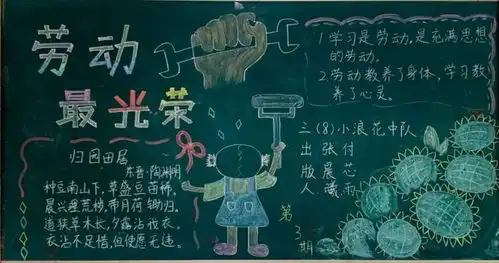 劳动
最光荣
归园田居
东晋·陶渊明
种豆南山下,草盛豆苗稀。
晨兴理荒秽,带月荷锄归。
道狭草木长,夕露沾我衣。
衣沾不足惜,但使愿无违。
1.学习是劳动,是充满思想
的劳动。
2.劳动教养了身体,学习教
养了心灵。
三(8)小浪花中队
出 张 付
版 晨 芯
人 雨
第3期